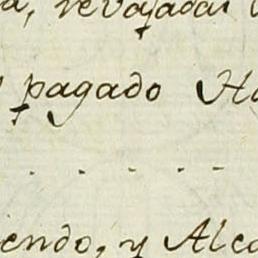 a, revajadas
pagado Ha
. . . . . -
iendo, y Alca